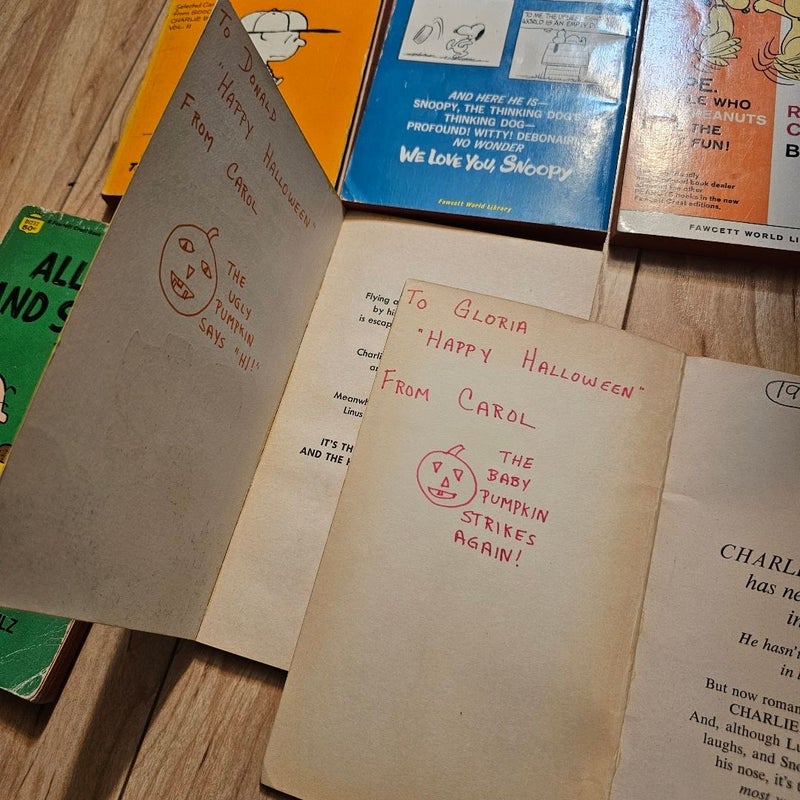 Selected Ca
from GOOD
CHARLIE B
VOL. II
TO ME THE UP
WORLD IS AN EMPTY
AND HERE HE IS—
SNOOPY, THE THINKING DOG'S
THINKING DOG—
PROFOUND! WITTY! DEBONAIR
NO WONDER
WE LOVE YOU, SNOOPY
Fawcett World Library
PE.
LE WHO
PEANUTS
THE
FUN!
R
C
B
book dealer
other
books in the now
Fawcett Crest editions.
FAWCETT WORLD LI
50¢
ALL
AND S
LZ
TO DONALD
"HAPPY HALLOWEEN"
FROM CAROL
THE
UGLY
PUMPKIN
SAYS "HI!"
Flying a
by hi
is escap
Charli
Meanwh
Linus
IT'S TH
AND THE
TO GLORIA
"HAPPY HALLOWEEN"
FROM CAROL
THE
BABY
PUMPKIN
STRIKES
AGAIN!
19
CHARLI
has ne
in
He hasn't
in l
But now roman
CHARLIE
And, although Lu
laughs, and Sno
his nose, it's
most